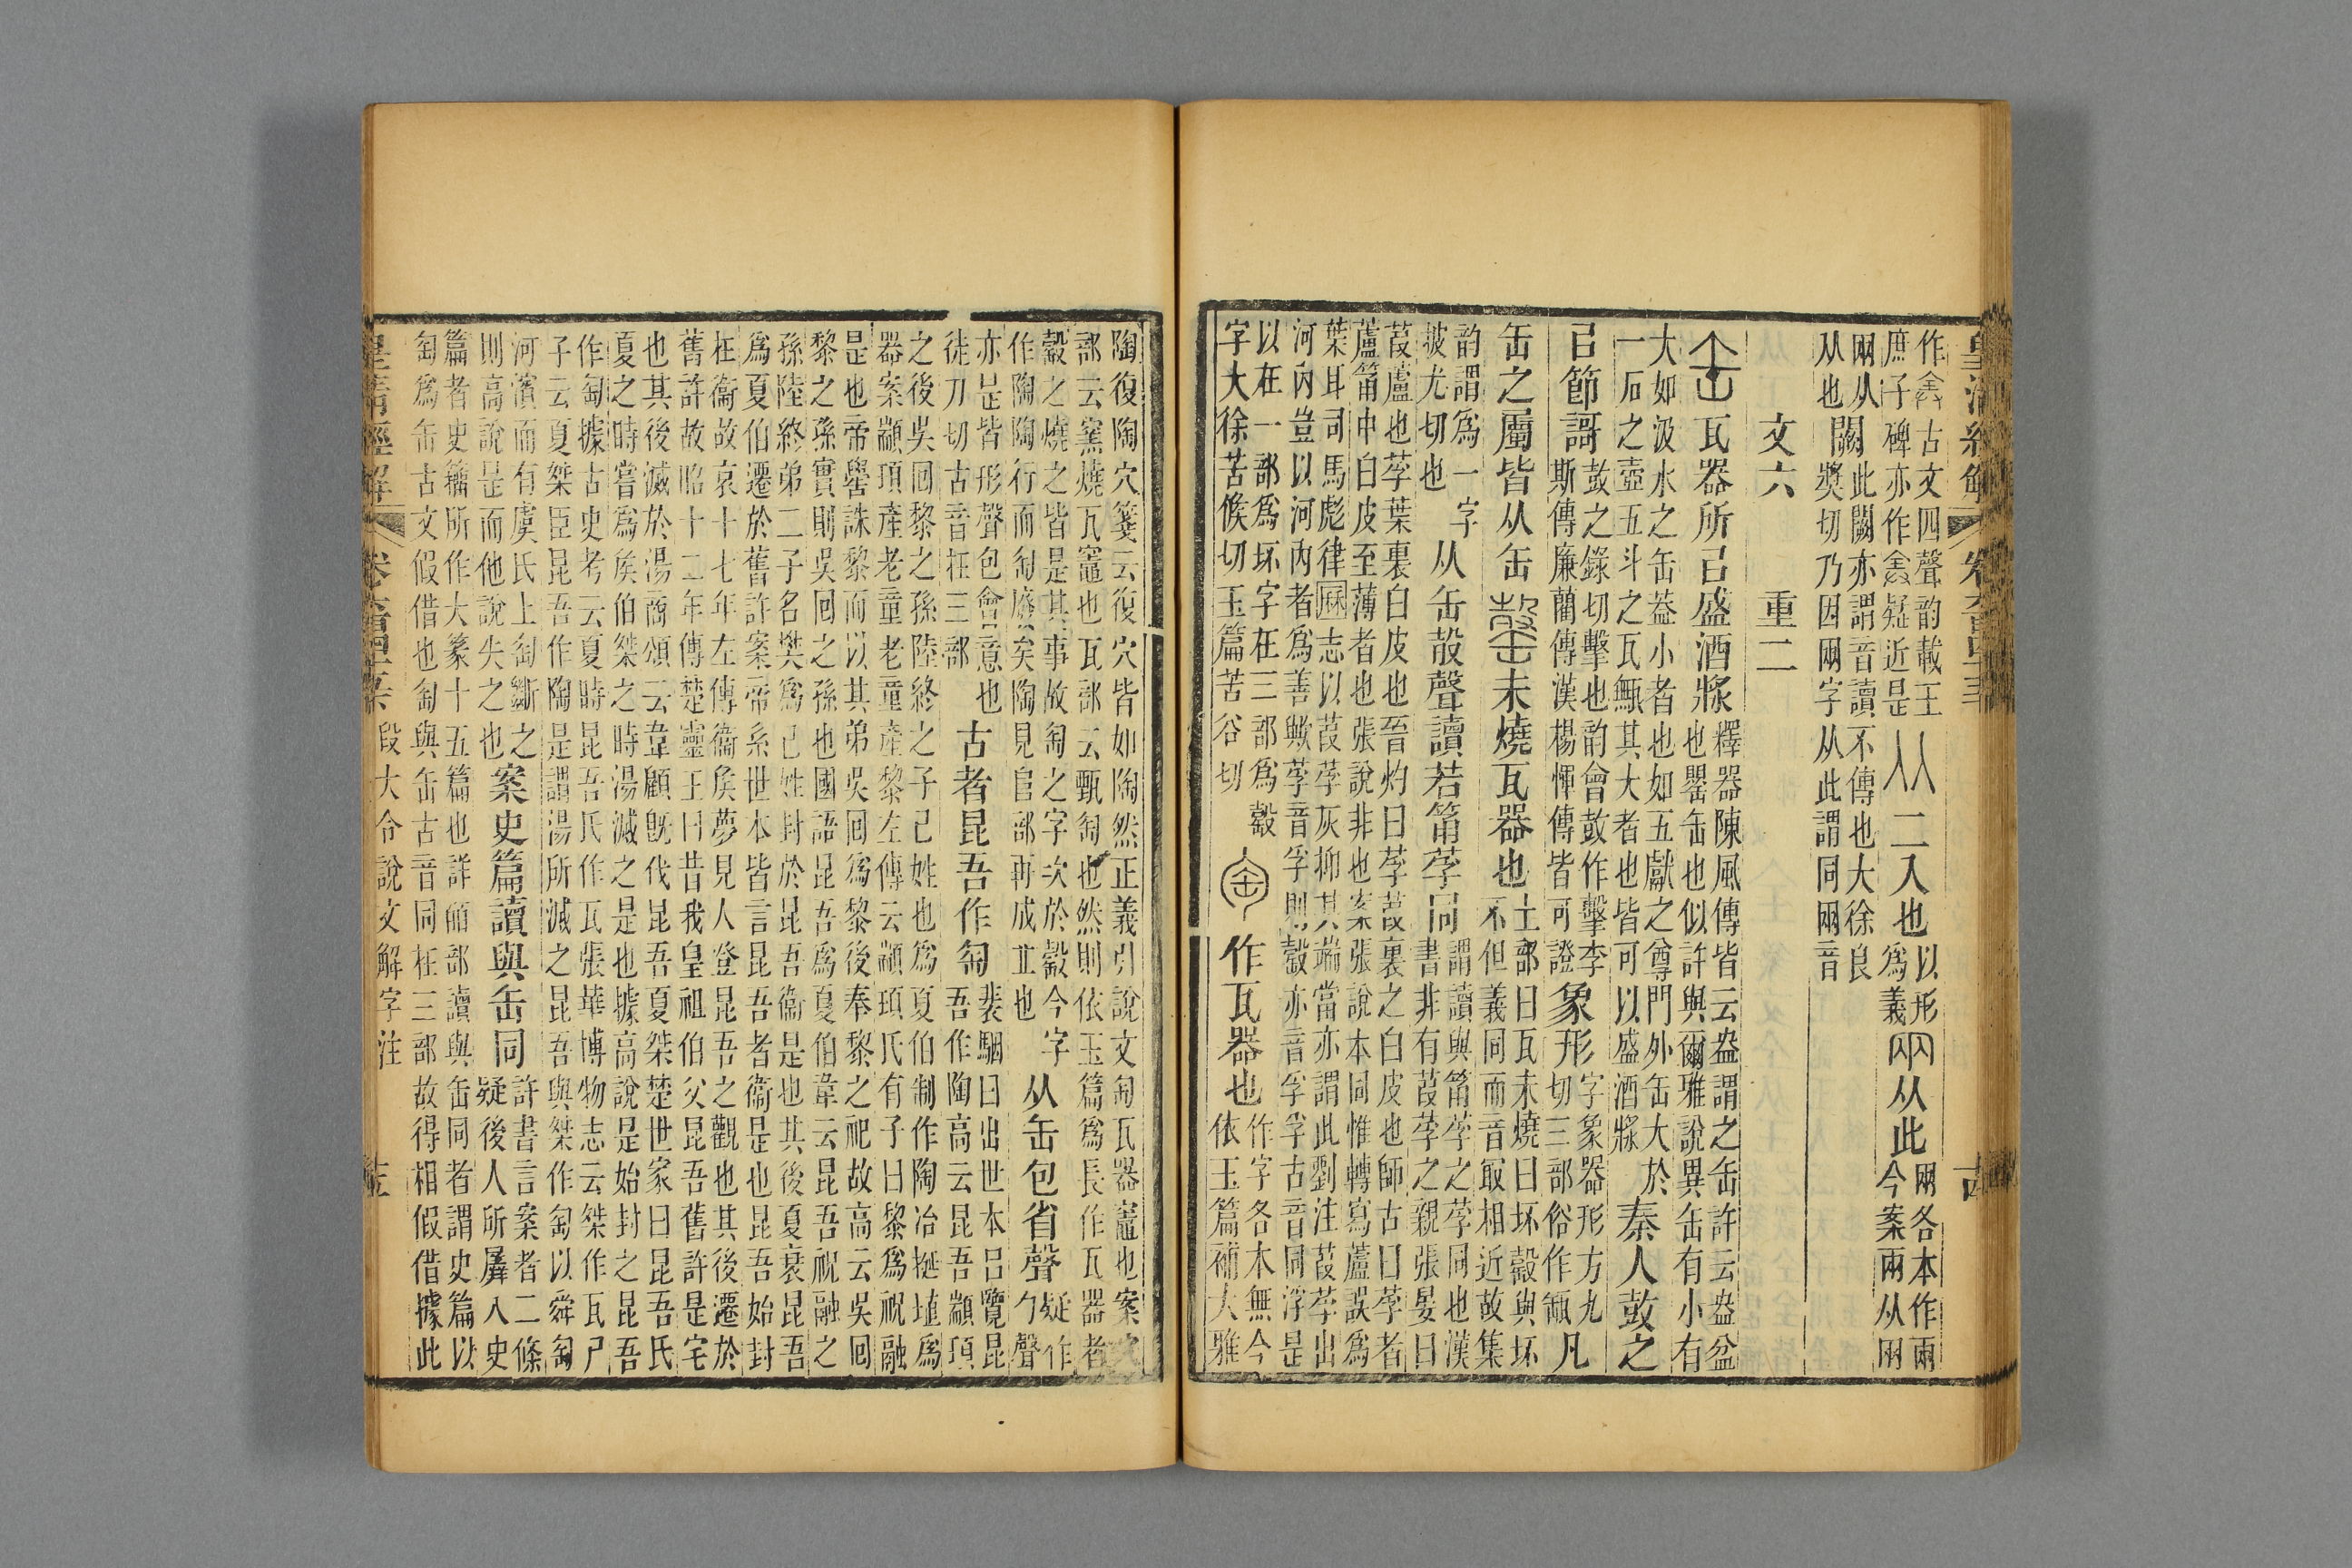 皇清經解
作𠓜古文四聲韵載王庶子碑亦作𠓜疑近是从二入也以形爲義㒳从此兩各本作㒳今案兩从㒳
㒳从从也闕此闕亦謂音讀不傳也大徐良奬切乃因㒳字从此謂同㒳音
文六 重二
缶瓦器所㠯盛酒𤖅釋器陳風傳皆云盎謂之缶許云盎盆也罌缶也似許與爾雅說異缶有小有
大如汲水之缶葢小者也如五獻之尊門外缶大於一石之壺五斗之瓦甒其大者也皆可以盛酒𤖅秦人鼓之
㠯節謌鼓之錄切擊也韵會鼓作擊李斯傳廉藺傳漢楊惲傳皆可證象形字象器形方九切三部俗作缻凡
缶之屬皆从缶㲉未燒瓦器也土部曰瓦未燒曰坏㲉與坏不但義同而音最相近故集
韵謂爲一字披尤切也从缶㱿聲讀若筩莩同謂讀與筩莩之莩同也漢書非有葭莩之親張晏曰
葭蘆也莩葉裏白皮也晉灼曰莩葭裏之白皮也師古曰莩者蘆筩中白皮至薄者也張說非也案張說本同惟轉寫蘆誤爲
葉耳司馬彪律厤志以葭莩灰抑其端當亦謂此劉注葭莩出河內豈以河內者爲善歟莩音孚則㲉亦音孚孚古音同浮是
以在一部爲坏字在三部爲㲉字大徐苦候切玉篇苦谷切匋作瓦器也作字各本無今依玉篇補大雅
陶復陶穴箋云復穴皆如陶然正義引說文匋瓦器竈也案穴部云窯燒瓦竈也瓦部云甄匋也然則依玉篇爲長作瓦器者
㲉之燒之皆是其事故匋之字次於㲉今字作陶陶行而匋廢矣陶見𨸏部再成丘也从缶包省聲疑作勹聲
亦是皆形聲包會意也徒刀切古音在三部古者昆吾作匋裴駰曰出世本呂覽昆吾作陶高云昆吾顓頊
之後吳回黎之孫陸終之子己姓也爲夏伯制作陶冶埏埴爲器案顓頊產老童老童產黎左傳云顓頊氏有子曰黎爲祝融
是也帝嚳誅黎而以其弟吳回爲黎後奉黎之祀故高云吳回黎之孫實則吳回之孫也國語昆吾爲夏伯韋云昆吾祝融之
孫陸終弟二子名樊爲己姓封於昆吾衞是也其後夏衰昆吾爲夏伯遷於舊許案帝系世本皆言昆吾者衞是也昆吾始封
在衞故哀十七年左傳衞矦夢見人登昆吾之觀也其後遷於舊許故昭十二年傳楚靈王曰昔我皇祖伯父昆吾舊許是宅
也其後滅於湯商頌云韋顧旣伐昆吾夏桀楚世家曰昆吾氏夏之時嘗爲矦伯桀之時湯滅之是也據高說是始封之昆吾
作匋據古史考云夏時昆吾氏作瓦張華博物志云桀作瓦尸子云夏桀臣昆吾作陶是謂湯所滅之昆吾與桀作匋以舜匋
河濱而有虞氏上匋斷之則高說是而他說失之也案史篇讀與缶同許書言案者二條疑後人所羼入史
篇者史籒所作大篆十五篇也詳皕部讀與缶同者謂史篇以匋爲缶古文假借也匋與缶古音同在三部故得相假借據此
皇清經解 段大令說文解字注